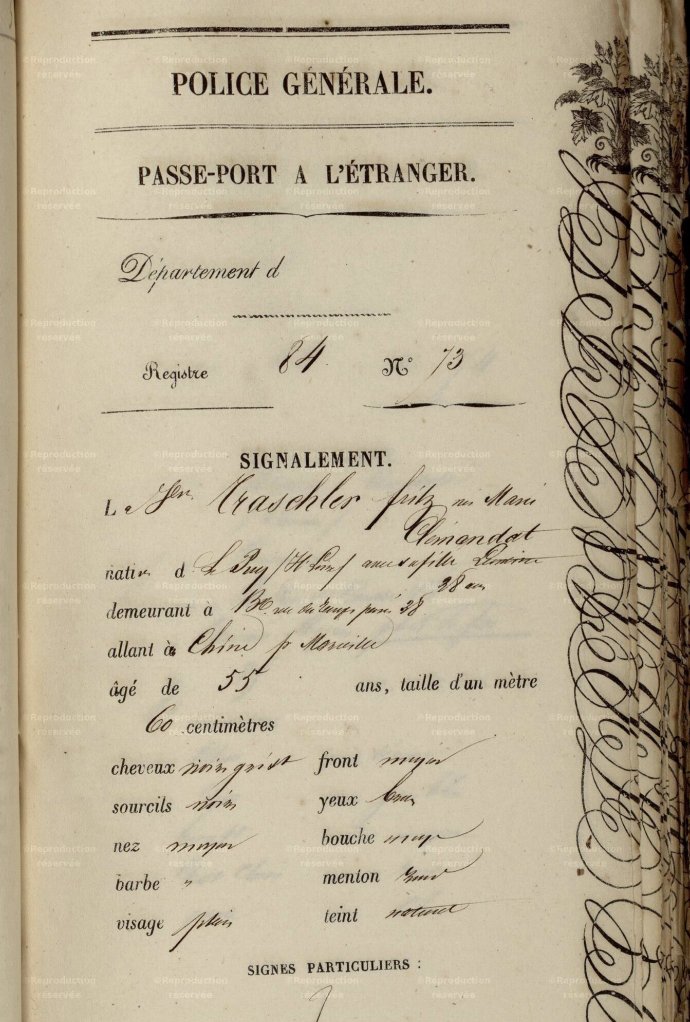 POLICE GÉNÉRALE.
PASSE-PORT A L'ÉTRANGER.
Département d
Registre 84 N° 73
SIGNALEMENT.
L Traschler fritz née Marie
Clémandot
native d Le Puy (Hte Loire) avec sa fille
28 ans
demeurant à Bx rue du temps passé 28
allant à Chine p Marseille
âgé de 55 ans, taille d'un mètre
60 centimètres
cheveux noirs grist front moyen
sourcils noirs yeux brun
nez moyen bouche moye
barbe " menton rond
visage plein teint naturel
SIGNES PARTICULIERS :
©Reproduction réservée